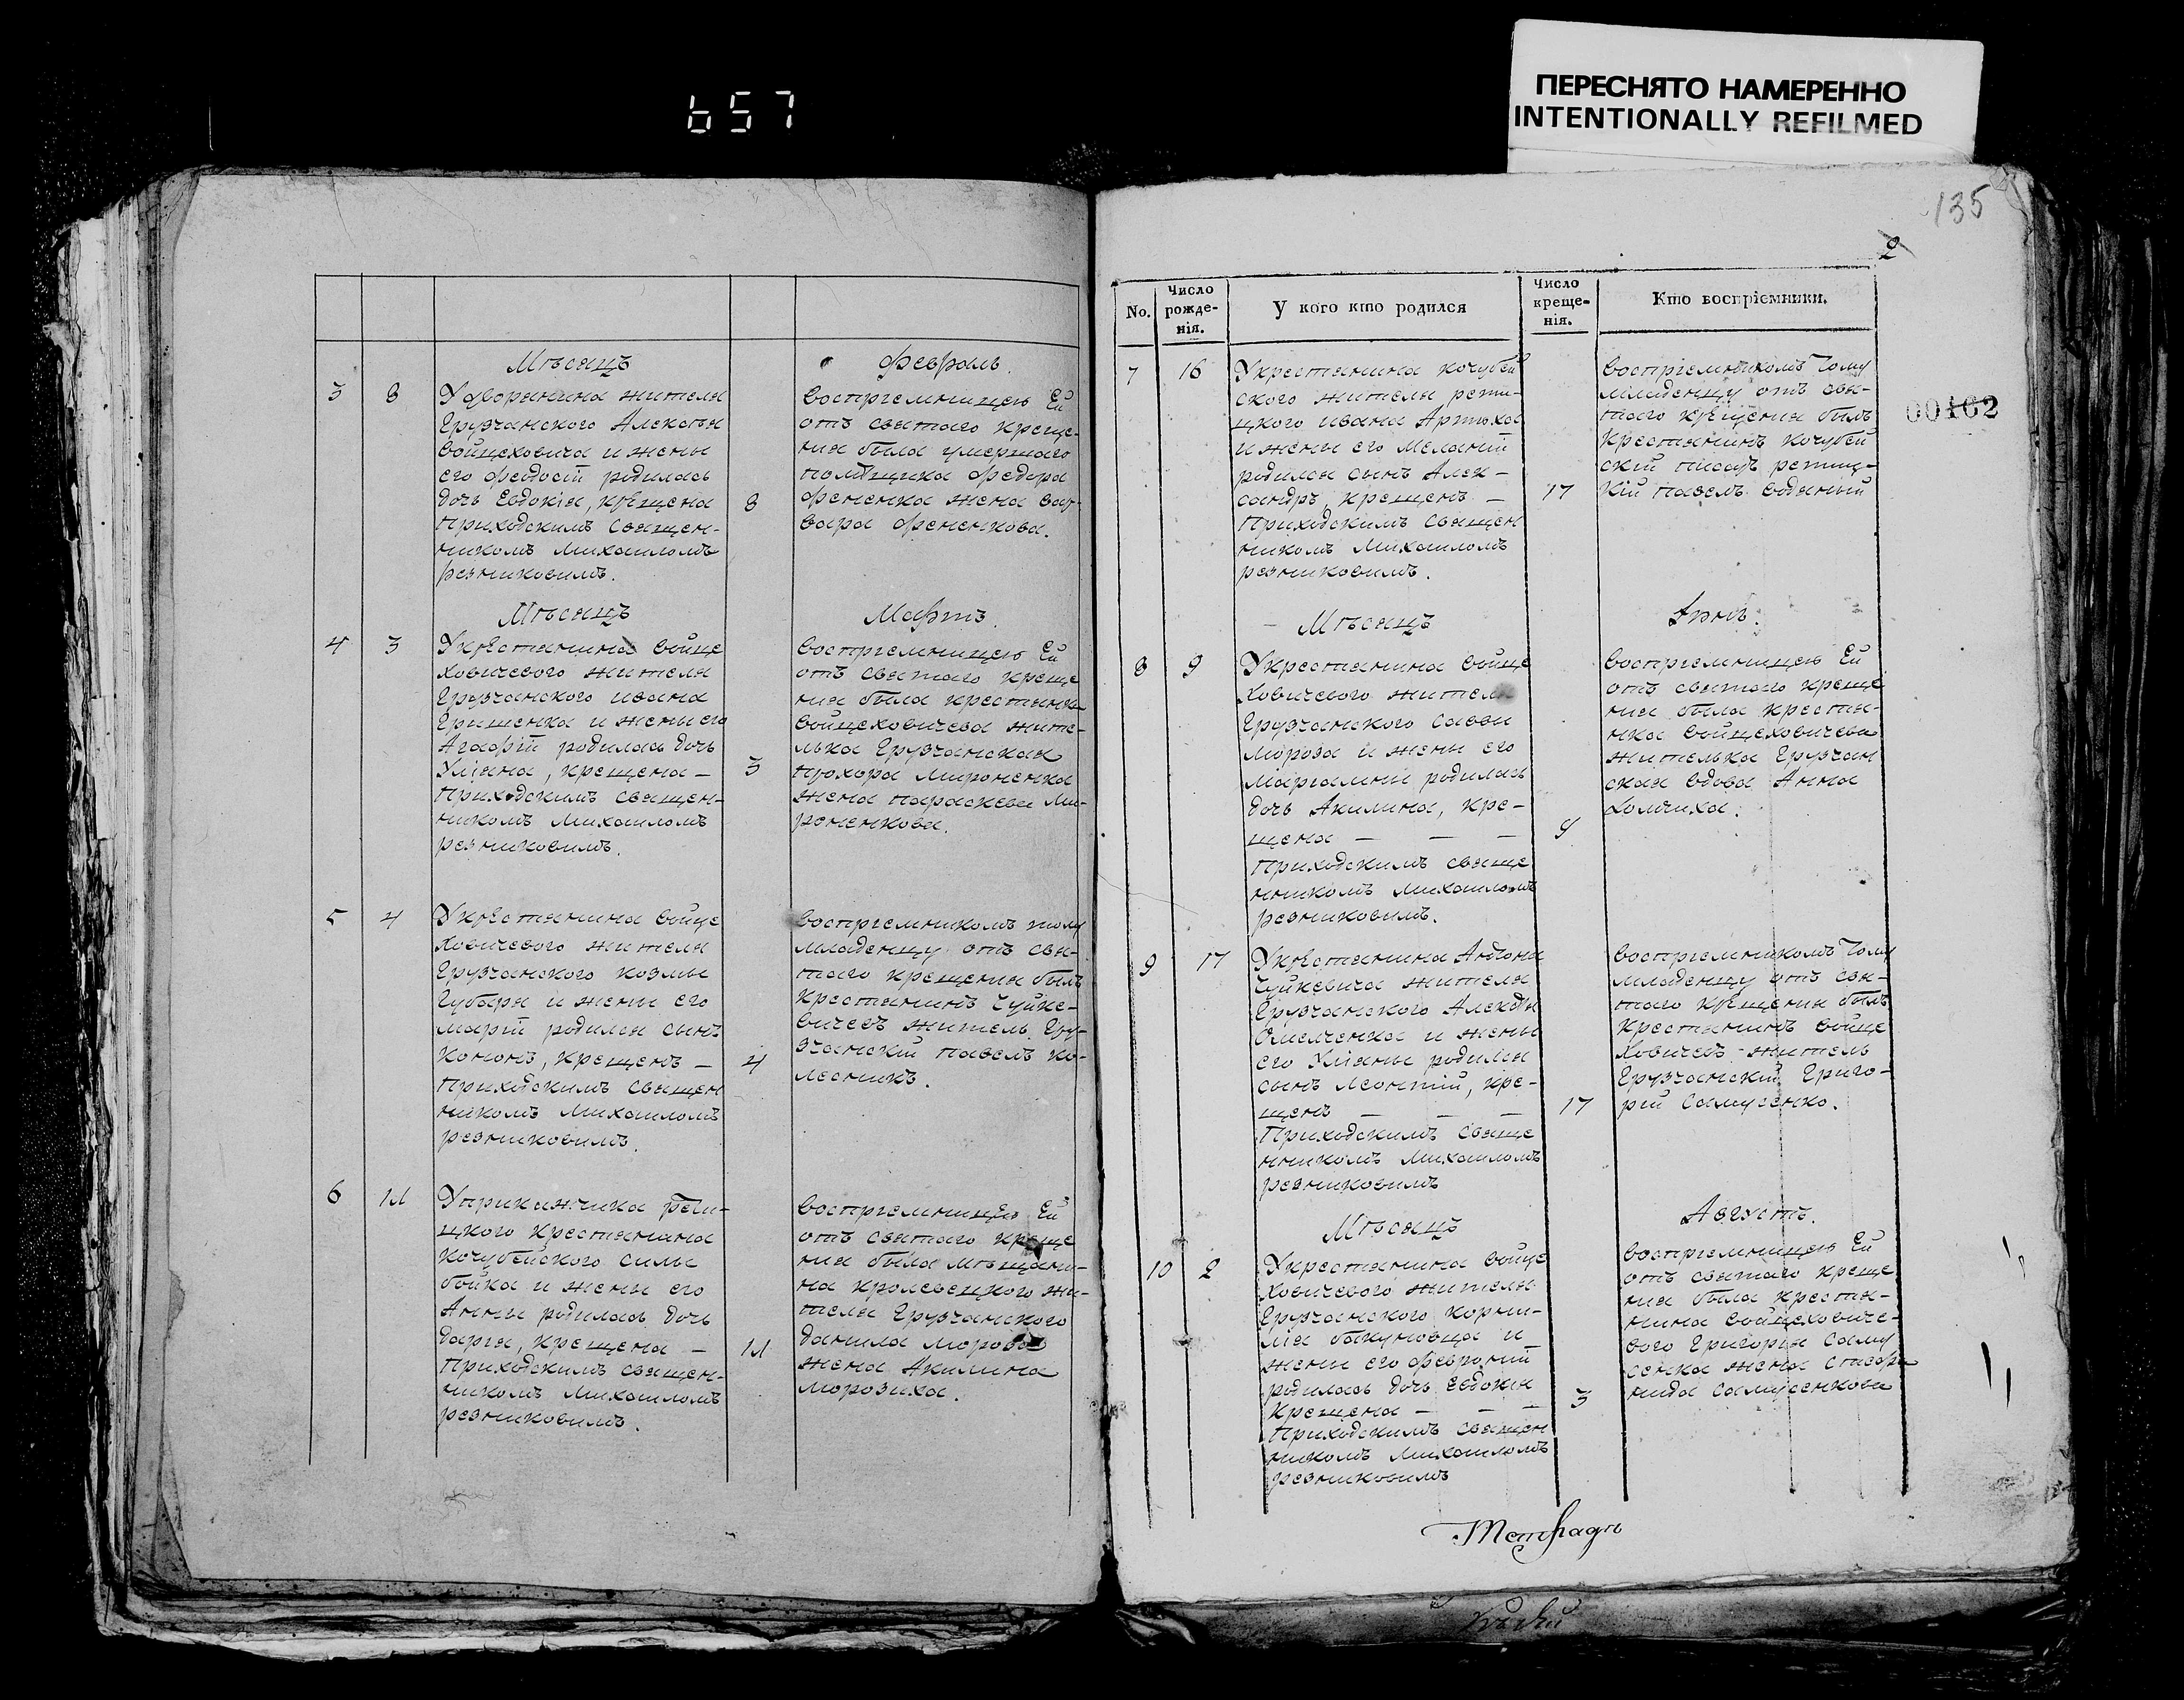 657
ПЕРЕСНЯТО НАМЕРЕННО
INTENTIONALLY REFILMED
135
2
00162
Мѣсяцъ Февраль.
3 8
Удворянина жителя
Грузчанского Алексѣя
Войцеховича и жены
его Феодосіи родилась
дочь Евдокія, крещена
Приходскимъ священ-
никомъ Михаиломъ
резниковимъ.
8
Воспріемницею Ей
отъ святаго креще-
нія была умершаго
помѣщика Федора
Фененка жена Вар-
вара Фененкова.
Мѣсяцъ Мартъ.
4 3
Укрестянина Войце
ховичевого жителя
Грузчанского ивана
Гришенка и жены его
Агафіи родилась дочь
Уліяна, крещена –
Приходскимъ священ-
никомъ Михаиломъ
резниковимъ.
3
Воспріемницею Ей
отъ святаго креще
нія была крестянка
Войцеховичева жите-
лька Грузчанская
Прохора Мироненка
жена параскева Ми-
роненкова.
5 4
Укрестянина Войце
ховичевого жителя
Грузчанского козмы
Губаря и жены его
маріи родился сынъ
кононъ, крещенъ –
Приходскимъ священ
никомъ Михаиломъ
резниковимъ.
4
Воспріемникомъ тому
младенцу отъ свя-
таго крещенія былъ
крестянинъ Чуйке-
вичевъ житель Гру-
зчанскій павелъ ко-
лесникъ.
6 14
Уприкажчика рети-
цкого крестянина
кочубейского силы
бойка и жены его
Анны родилась дочь
дарія, крещена –
Приходскимъ священ-
никомъ Михаиломъ
резниковимъ.
14
Воспріемницею Ей
отъ святаго креще
нія была мѣщани-
на кролевецкого жи-
теля Грузчанского
данила мороза
жена Акилина
морозиха.
No.
Число рожде-нія.
У кого кто родился
Число креще-нія.
Кто воспріемники.
7 16
Укрестянина кочубей
ского жителя рети-
цкого ивана Артюха
и жены его меланіи
родился сынъ Алек-
сандръ, крещенъ –
Приходскимъ священ
никомъ Михаиломъ
резниковимъ.
17
Воспріемникомъ Тому
младенцу отъ свя-
таго крещенія былъ
крестянинъ кочубей
скій писарь ретиц-
кій павелъ водяный
Мѣсяцъ
8 9
Укрестянина Войце
ховичевого жителя
Грузчанского саввы
мороза и жены его
родилась
дочь Акилина, кре-
щена – – –
Приходскимъ свяще
нникомъ Михаиломъ
резниковимъ.
9
Воспріемницею Ей
отъ святаго креще
нія была крестя-
нка Войцеховичева
жителька Грузчан
ская вдова Анна
9 17
Укрестянина Антона
Чуйкевича жителя
Грузчанского Алексѣя
Омелченка и жены
его Уліяны родился
сынъ Леонтій, кре-
щенъ – – –
Приходскимъ свяще
нникомъ Михаиломъ
резниковимъ
17
Воспріемникомъ Тому
младенцу отъ свя-
таго крещенія былъ
крестянинъ Войце
ховичевъ житель
Грузчанскій Григо-
рій Самусенко.
Мѣсяцъ Августъ.
10 2
Укрестянина Войце
ховичевого жителя
Грузчанского корни-
лія бакуновца и
жены его февроніи
родилась дочь Евдокія
крещена – – –
Приходскимъ священ
никомъ Михаиломъ
резниковимъ
3
Воспріемницею Ей
отъ святаго креще
нія была крестя-
нина Войцеховиче-
вого Григорія Саму
сенка жена
Самусенкова